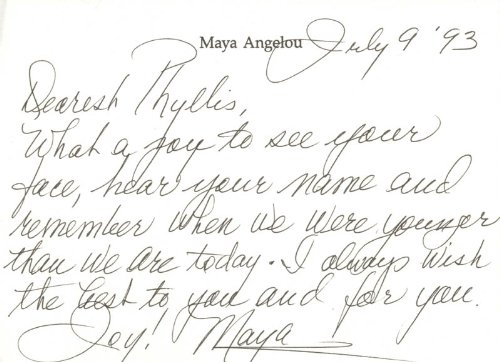 Maya Angelou July 9 '93
Dearest Phyllis,
What a joy to see your
face, hear your name and
remember when we were younger
than we are today. I always wish
the best to you and for you.
Joy! Maya